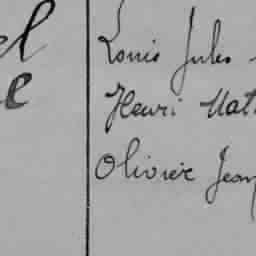 el
e
Louis Jules
Henri Mat
Olivier Jean